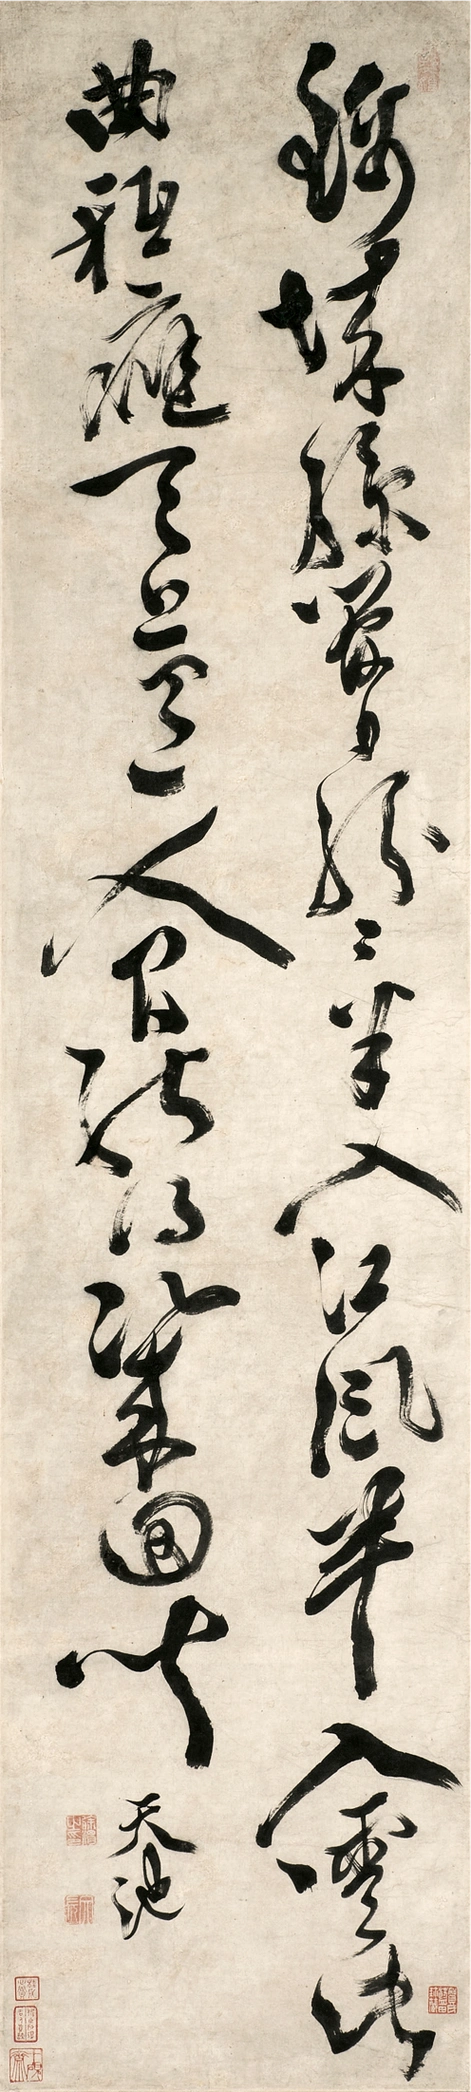 錦城絲管日紛紛半入江風半入雲此
曲祗應天上有人間能得幾回聞
天池